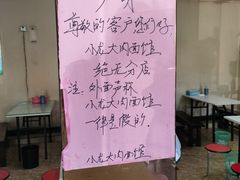 声明
尊敬的客户您们好,
小龙大肉面馆
绝无分店
注:外面声称
小龙大肉面馆
一律是假的.
小龙大肉面馆